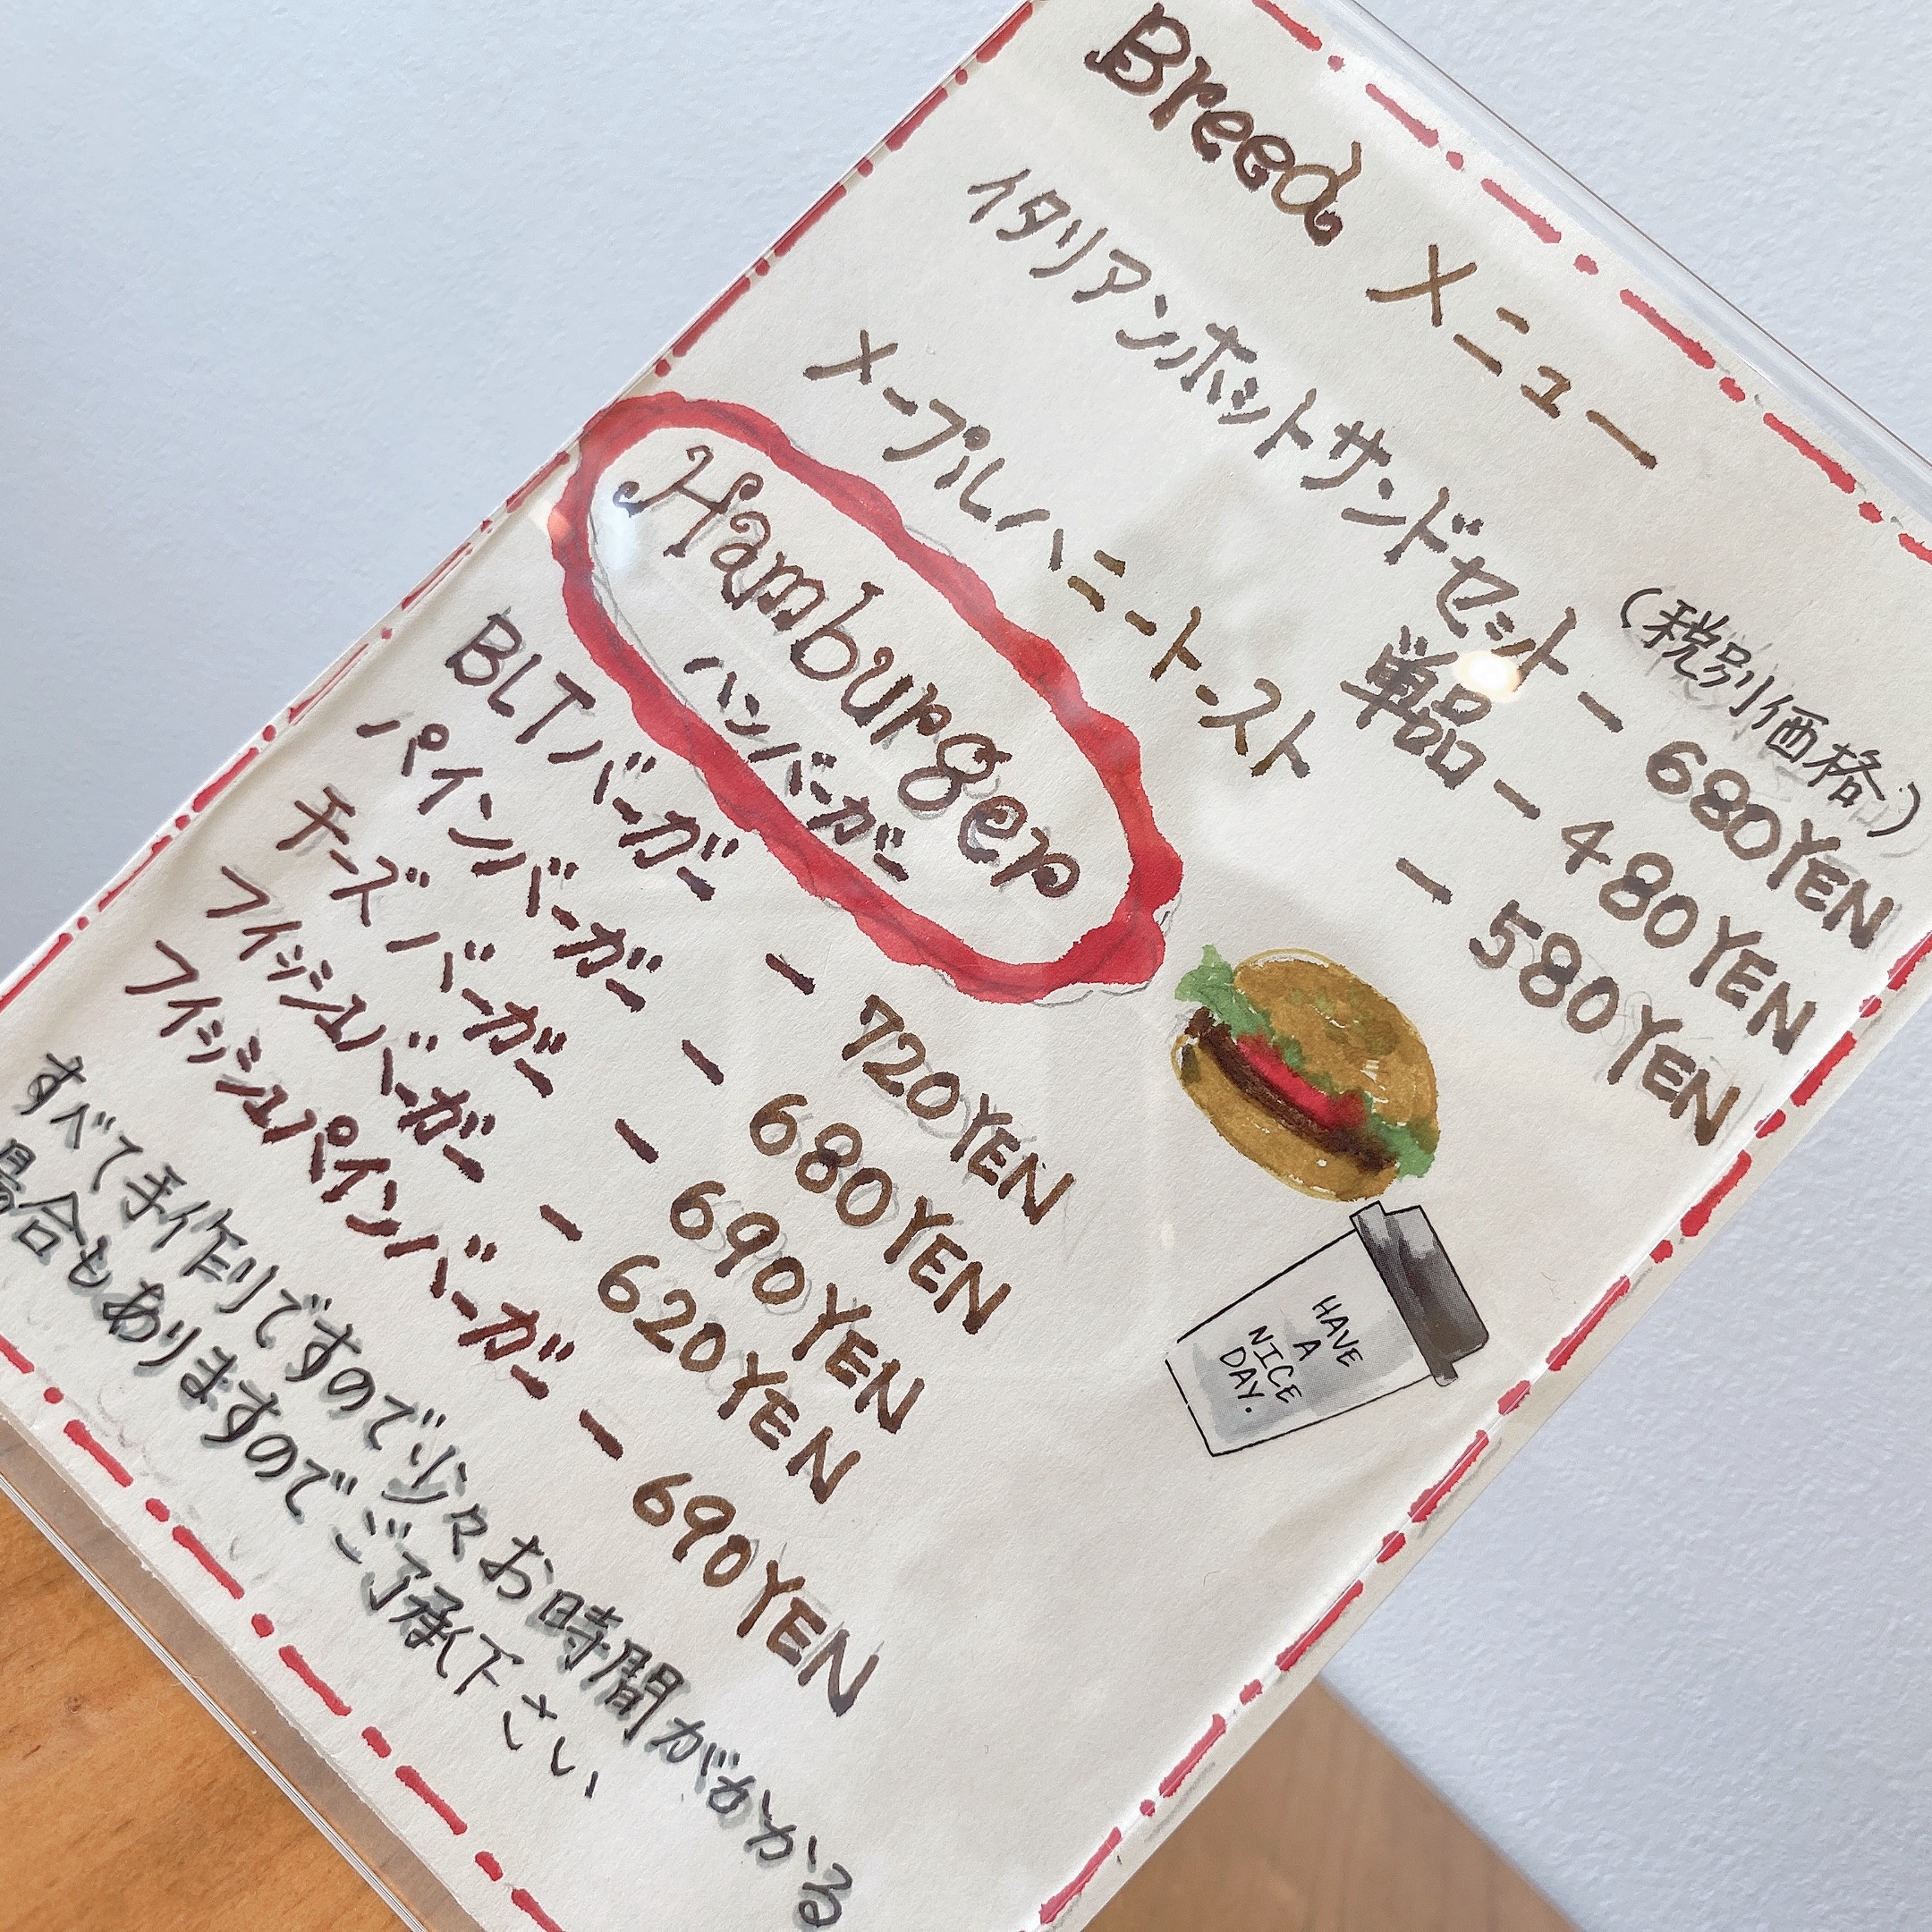 Breed メニュー
(税別価格)
イタリアンホットサンドセット - 680YEN
単品 - 480YEN
メープルハニートースト - 580YEN
Hamburger
ハンバーガー
BLTバーガー - 720YEN
パインバーガー - 680YEN
チーズバーガー - 690YEN
フィッシュバーガー - 620YEN
フィッシュパインバーガー - 690YEN
HAVE
A
NICE
DAY.
すべて手作りですので少々お時間がかかる
場合もありますのでご了承下さい